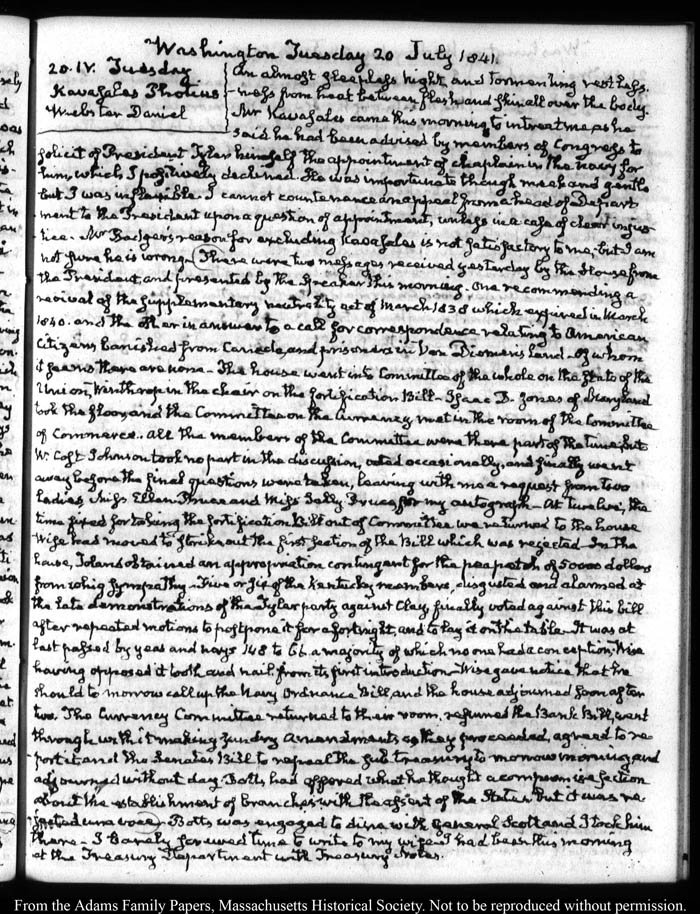 Washington Tuesday 20 July 1841.
20. IV. Tuesday
Kavasales Photius
Webster Daniel
An almost sleepless night, and tormenting restless-
ness from heat between flesh and skin all over the body.
Mr Kavasales came this morning to intreat me as he
said he had been advised by members of Congress to
solicit of President Tyler himself the appointment of chaplain in the Navy for
him, which I positively declined. He was importunate though meek and gentle
but I was inflexible. I cannot countenance an appeal from a head of Depart-
ment to the President upon a question of appointment, unless in a case of clear injus-
tice. Mr Badger's reason for excluding Kavasales is not satisfactory to me, but I am
not sure he is wrong. There were two messages received yesterday by the House from
the President, and presented by the Speaker this morning. One recommending a
revival of the supplementary neutrality act of March 1838 which expired in March
1840. and the other in answer to a call for correspondence relating to American
Citizens banished from Canada, and prisoners in Van Diemen's Land. Of whom
it seems there are none. The house went into Committee of the whole on the state of the
Union, Winthrop in the chair on the fortification Bill. Isaac D. Jones of Maryland
took the floor, and the Committee on the Currency met in the room of the Committee
of Commerce. All the members of the Committee were there part of the time, but
W. Cost Johnson took no part in the discussion, voted occasionally, and finally went
away before the final questions were taken, leaving with me a request from two
Ladies, Miss Ellen Bruce and Miss Sally Bruce, for my autograph. At twelve, the
time fixed for taking the fortification Bill out of Committee we returned to the house
Wise had moved to strike out the first section of the Bill which was rejected. In the
house, Toland obtained an appropriation contingent for the pea patch of 50000 dollars
from whig sympathy. Five or six of the Kentucky members, disgusted and alarmed at
the late demonstrations of the Tyler party against Clay, finally voted against this bill
after repeated motions to postpone it for a fortnight, and to lay it on the table. It was at
last passed by yeas and nays 148 to 66. a majority of which no one had a conception; Wise
having opposed it tooth and nail from its first introduction. Wise gave notice that he
should to morrow call up the Navy Ordnance Bill, and the house adjourned soon after
two. The Currency Committee returned to their room, resumed the Bank Bill, went
through with it making sundry Amendments as they proceeded, agreed to re-
port it and the Senates Bill to repeal the sub treasury to morrow morning and
adjourned without day. Botts had offered what he thought a compromise section
about the establishment of branches with the assent of the States but it was re-
jected una voce. Botts was engaged to dine with General Scott and I took him
there. I barely saved time to write to my wife. I had been this morning
at the Treasury Department with Treasury Notes.
From the Adams Family Papers, Massachusetts Historical Society. Not to be reproduced without permission.